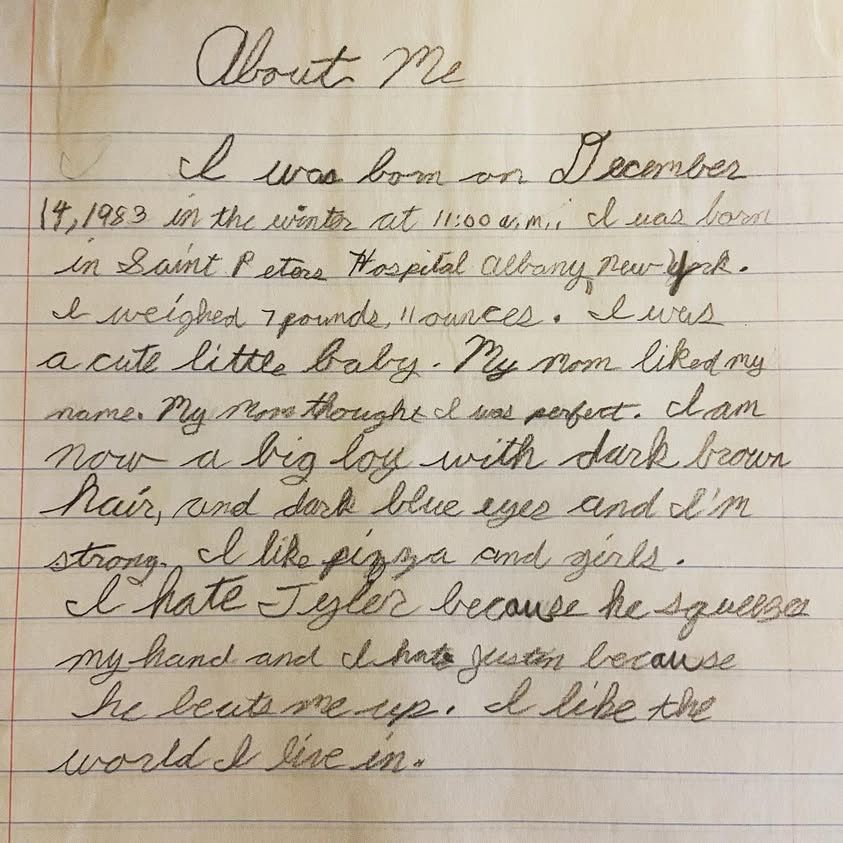 About Me
I was born on December
14, 1983 in the winter at 11:00 a.m., I was born
in Saint Peters Hospital Albany, New York.
I weighed 7 pounds, 11 ounces. I was
a cute little baby. My mom liked my
name. My Mom thought I was perfect. I am
now a big boy with dark brown
hair, and dark blue eyes and I'm
strong. I like pizza and girls.
I hate Tyler because he squeezes
my hand and I hate Justin because
he beats me up. I like the
world I live in.